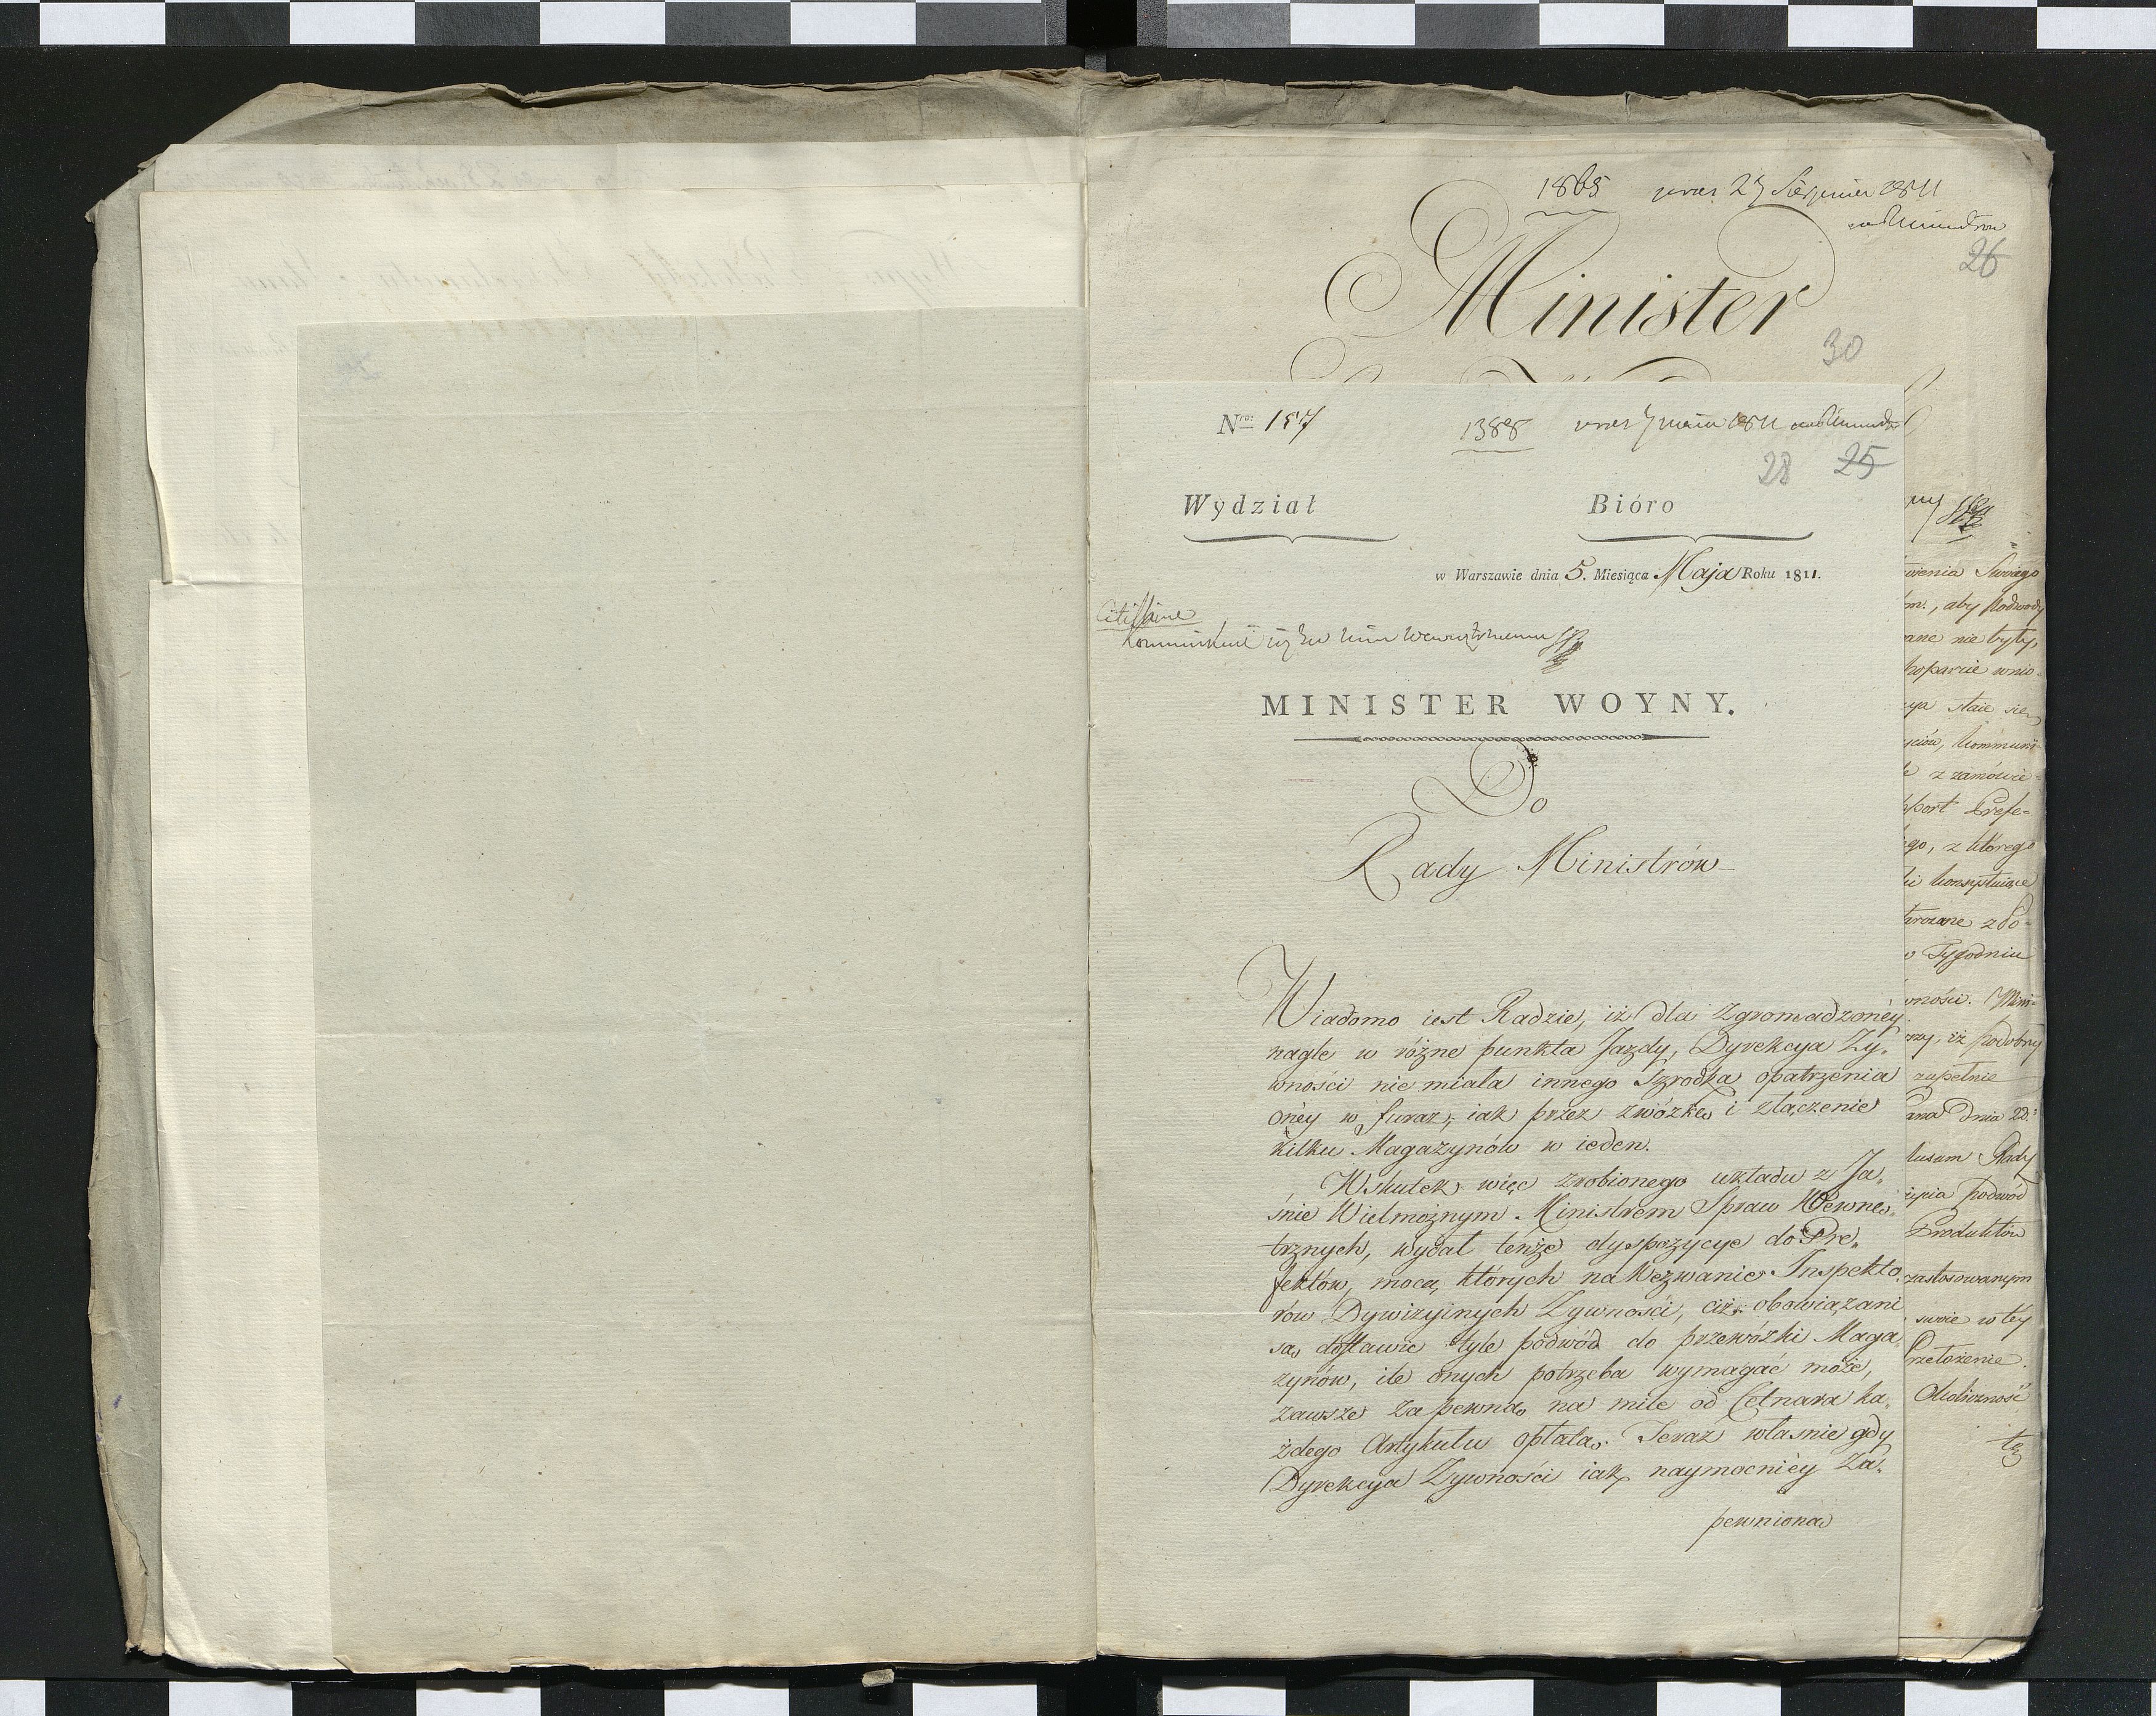 1865 prus. 27 Sierpnia 1811
26
Minister
30
Nro 157 1388 prus 7 maia 1811
28 25
Wydział Bióro
w Warszawie dnia 5. Miesiąca Maja Roku 1811.
Citissime
MINISTER WOYNY.
Do
Rady Ministrów
Wiadomo iest Radzie, iż dla zgromadzonéy
nagle w różne punkta Jazdy, Dyrekcya Ży„
wności nie miała innego szrodka opatrzenia
onéy w furaż, iak przez zwózkę i złączenie
kilku Magazynów w ieden.
Wskutek więc zrobionego układu z Ja„
śnie Wielmożnym Ministrem Spraw Wewnę„
trznych, wydał tenże dyspozycye do Pre„
fektów, mocą których na Wezwanie Inspekto„
rów Dywizyinych Żywności, ciż obowiązani
są, dostawić tyle podwód do przewózki Maga„
zynów, ile onych potrzeba wymagać może,
zawsze za pewną na milę od Cetnara ka„
żdego Artykułu opłatą. Teraz właśnie gdy
Dyrekcya Żywności iak naymocniéy Za„
pewnioną
wienia Swoiego
m., aby Podwody
ane nie były,
poparcie wnio-
ya staie się
kommuni-
z zamówie-
port Prefe-
go, z którego
konsystuiące
zdo-
Tygodniu
wności. Mini-
rzy, iż podobny
zupełnie
dnia 22.
Rady
podwód
Produktów
zastosowanym
swoie w téy
Przełożenie.
Okoliczność
tę